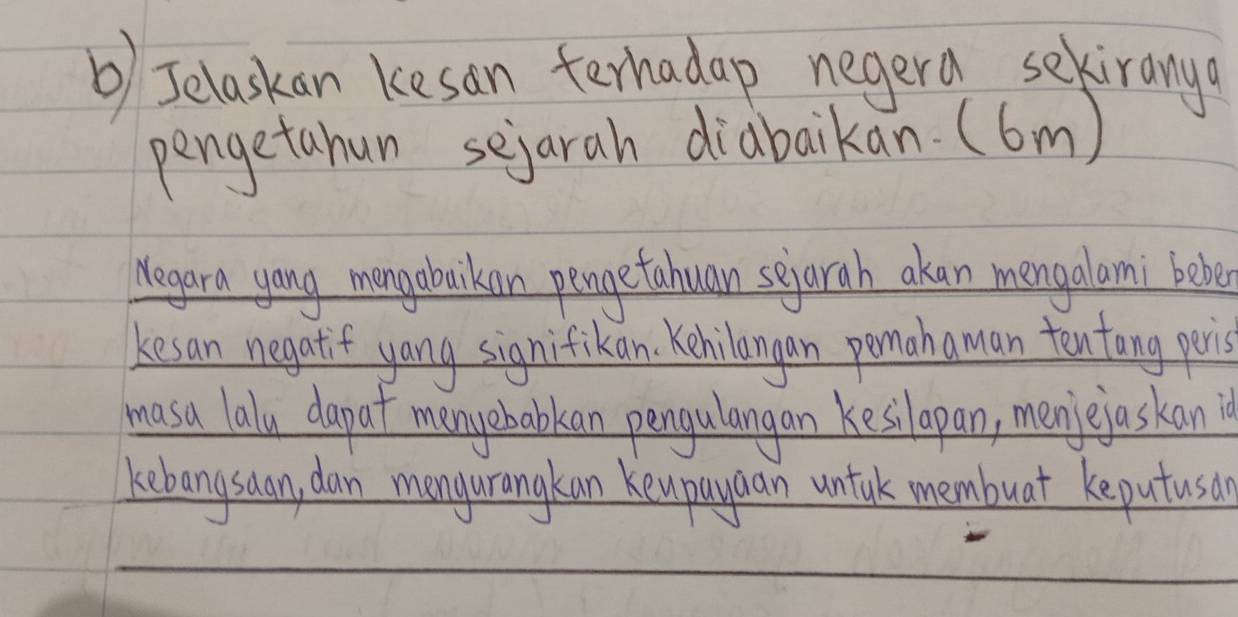 b) Jelaskan kesan terhadap negera sekiranya
pengetahun sejarah diabaikan. (6m)
Negara yang mengabaikan pengetahuan sejarah akan mengalami beber
kesan negatif yang signifikan. Kehilangan pemahaman tentang peris
masa lalu dapat menyebabkan pengulangan kesilapan, menjejaskan id
kebangsaan, dan mengurangkan keupayaan untuk membuat keputusan